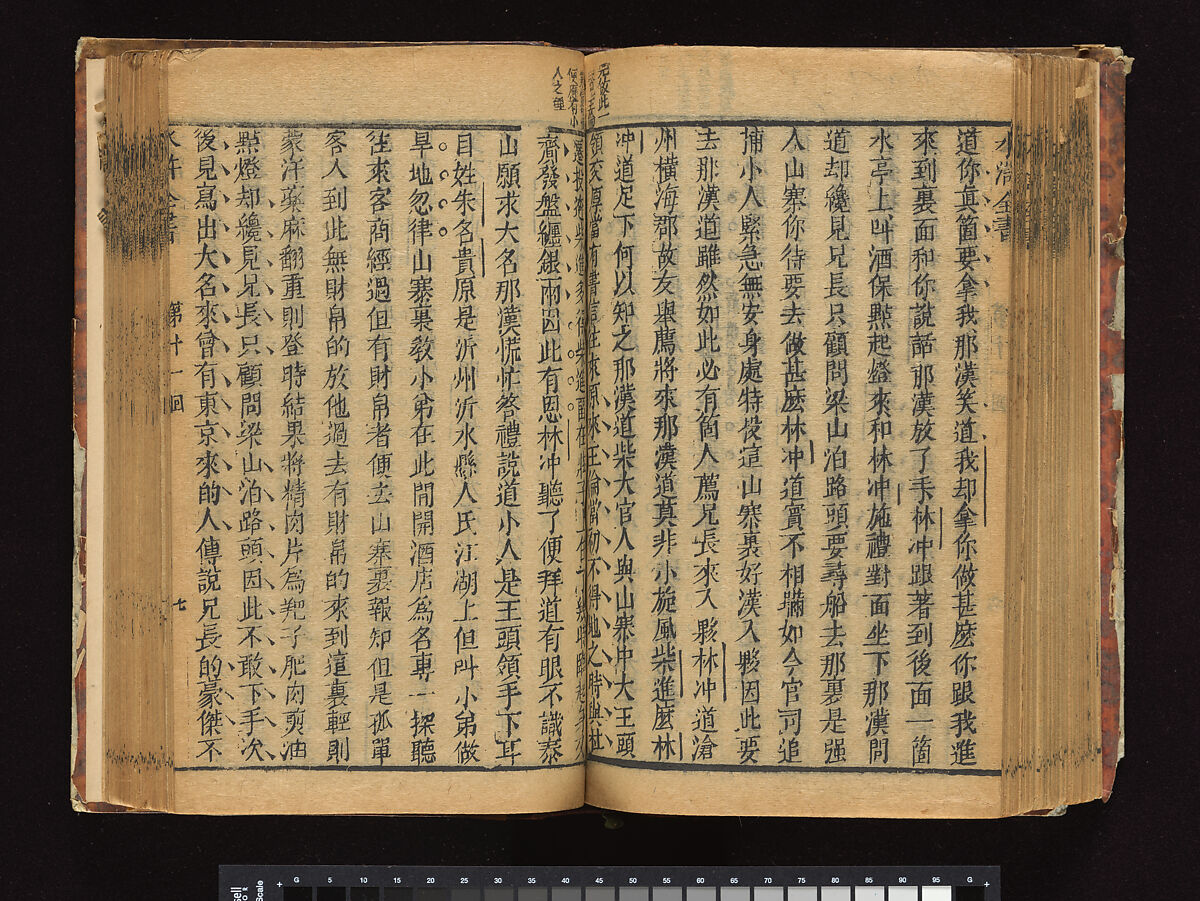 水滸全書
道你真箇要拿我那漢笑道我却拿你做甚麼你跟我進
來到裏面和你說話那漢放了手林冲跟著到後面一箇
水亭上叫酒保點起燈來和林冲施禮對面坐下那漢問
道却纔見兄長只顧問梁山泊路頭要尋船去那裏是强
人山寨你待要去做甚麽林冲道實不相瞞如今官司追
捕小人緊急無安身處特投這山寨裏好漢入夥因此要
去那漢道雖然如此必有箇人薦兄長來入夥林冲道滄
州橫海郡故友舉薦將來那漢道莫非小旋風柴進麽林
冲道足下何以知之那漢道柴大官人與山寨中大王頭
領交厚常有書信往來原來王倫當初不得地之時與杜
遷投
齎發盤纏銀兩因此有恩林冲聽了便拜道有眼不識泰
山願求大名那漢慌忙答禮說道小人是王頭領手下耳
目姓朱名貴原是沂州沂水縣人氏江湖上但叫小弟做
旱地忽律山寨裏教小弟在此間開酒店爲名專一探聽
往來客商經過但有財帛者便去山寨裏報知但是孤單
客人到此無財帛的放他過去有財帛的來到這裏輕則
蒙汗藥麻翻重則登時結果將精肉片爲羓子肥肉煎油
點燈却纔見兄長只顧問梁山泊路頭因此不敢下手次
後見寫出大名來曾有東京來的人傳說兄長的豪傑不
水滸全書 第十一回 七